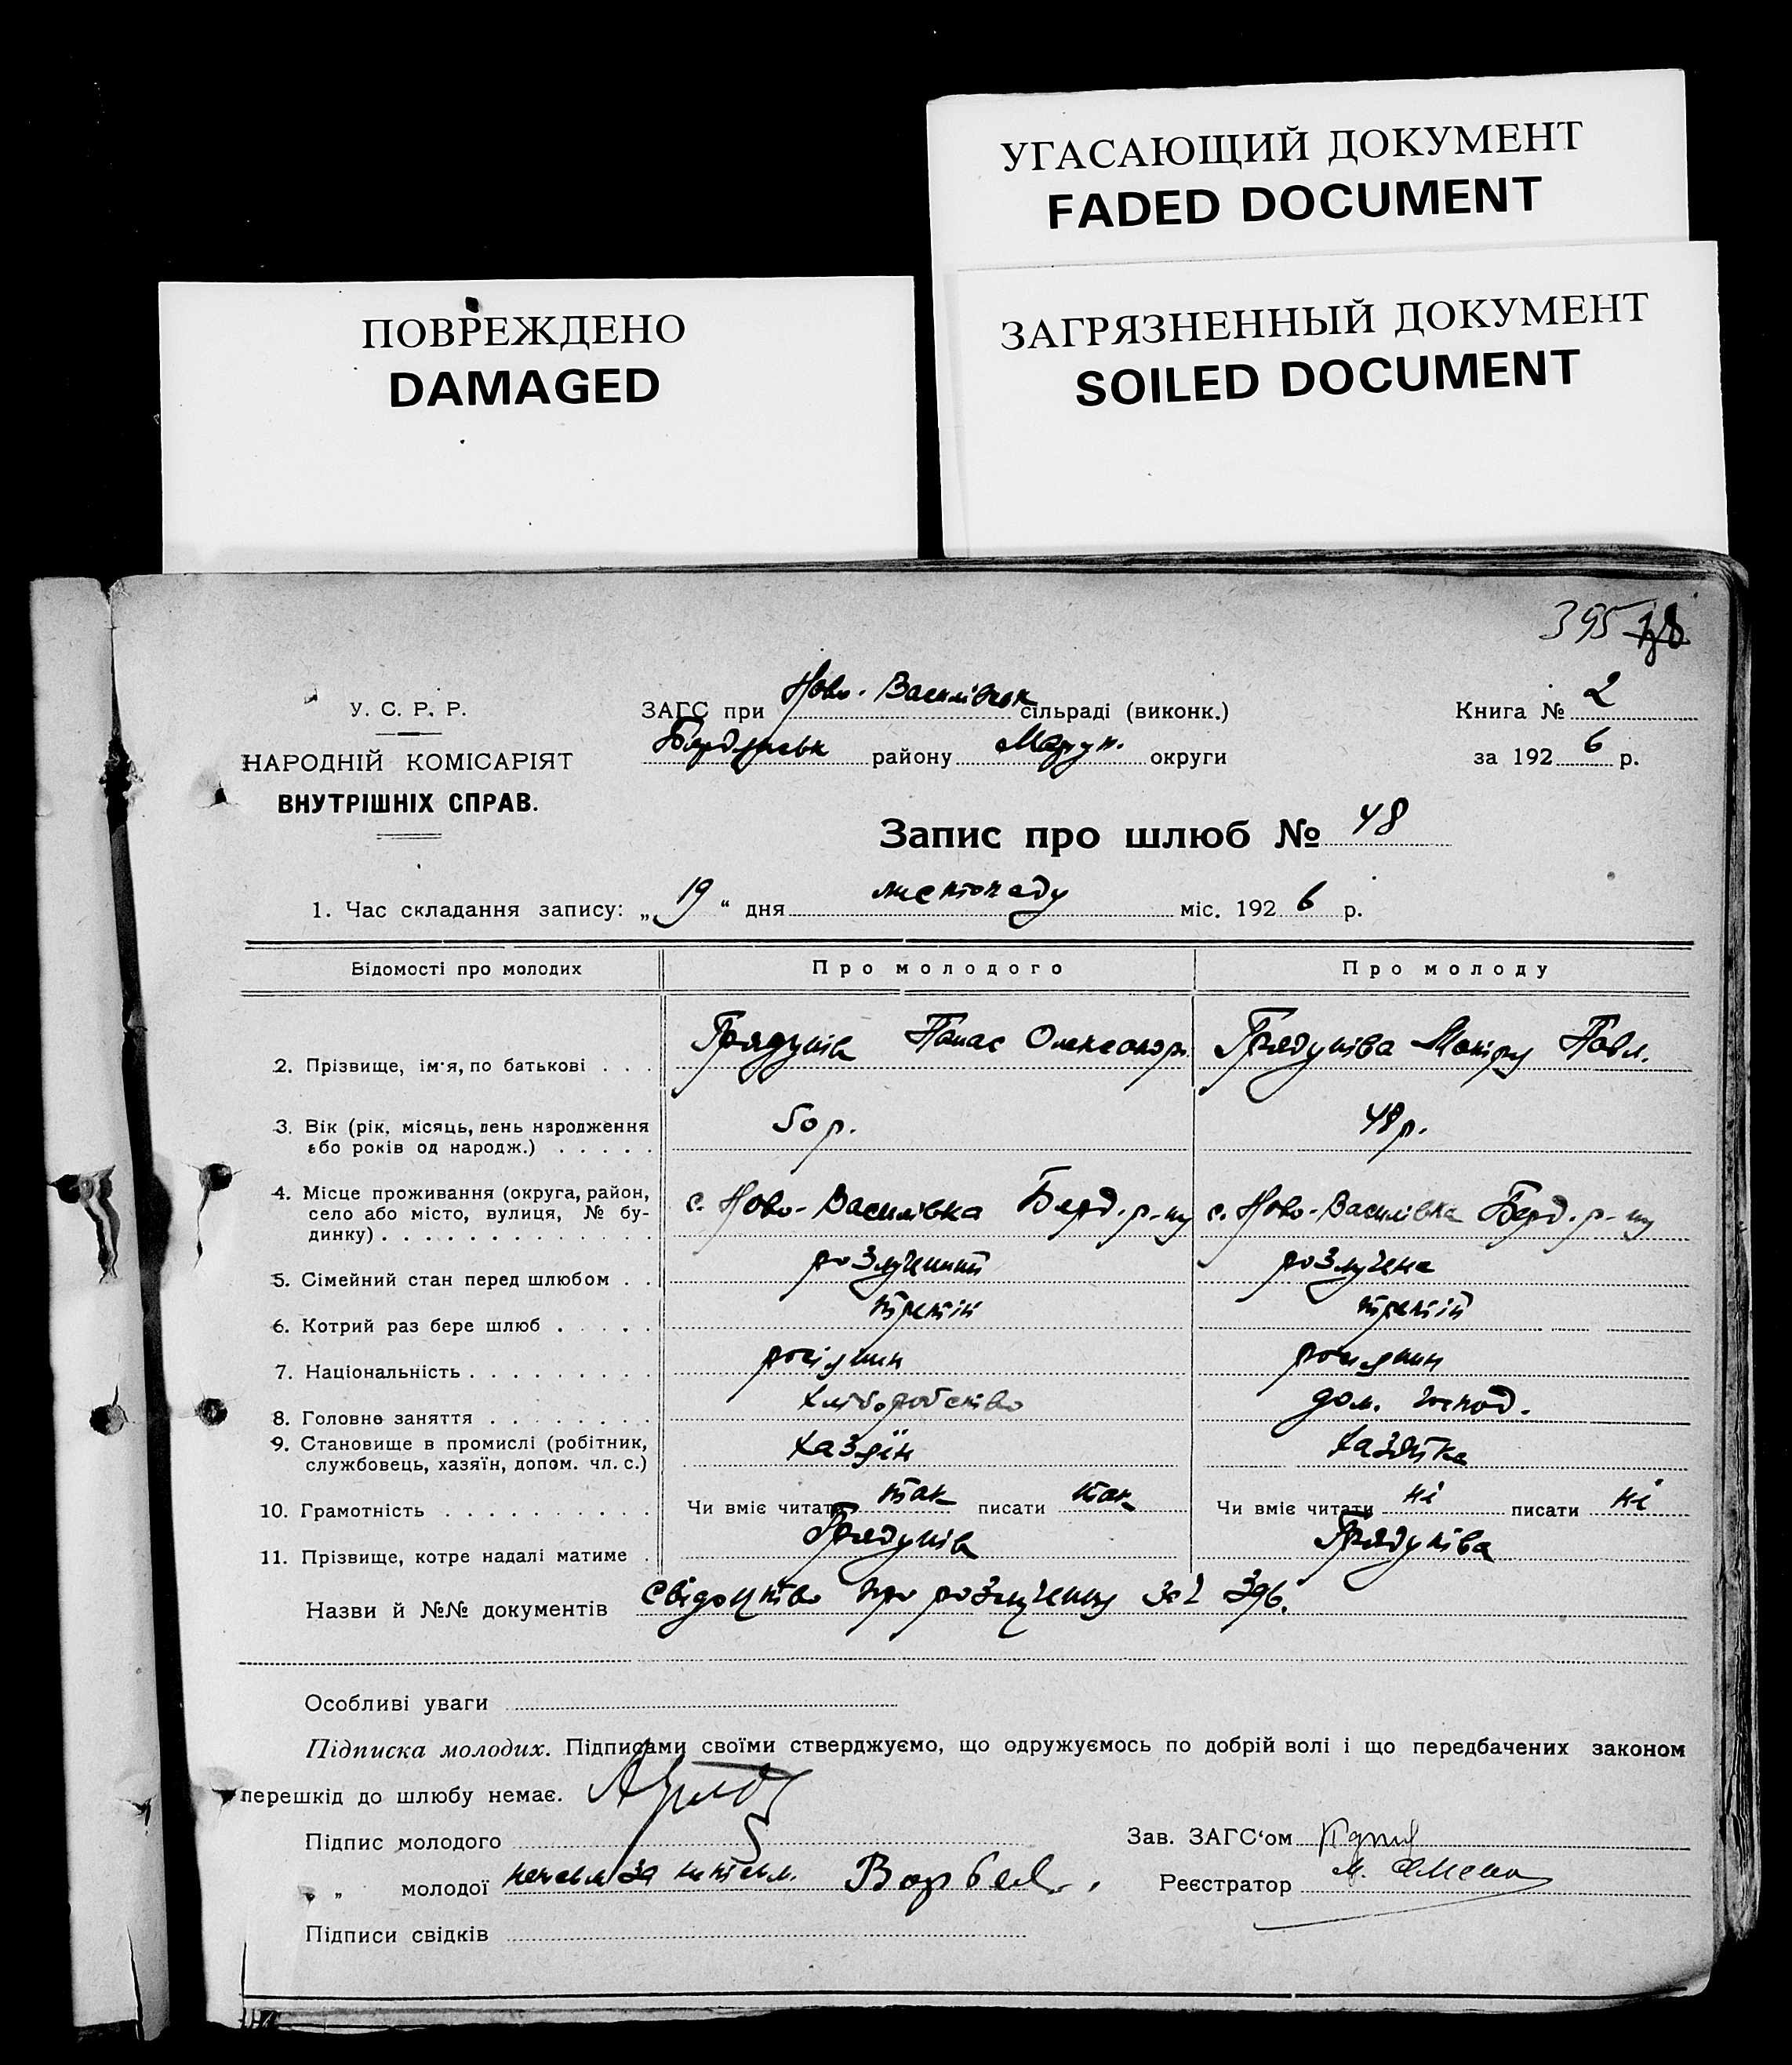 УГАСАЮЩИЙ ДОКУМЕНТ
FADED DOCUMENT
ПОВРЕЖДЕНО
DAMAGED
ЗАГРЯЗНЕННЫЙ ДОКУМЕНТ
SOILED DOCUMENT
395
У. С. Р. Р.
НАРОДНІЙ КОМІСАРІЯТ
ВНУТРІШНІХ СПРАВ.
ЗАГС при Ново-Василівськ сільраді (виконк.)
Бердянськ району Маріуп. округи
Книга № 2
за 1926 р.
Запис про шлюб № 48
1. Час складання запису: „19“ дня листопаду міс. 1926 р.
Відомості про молодих Про молодого Про молоду
2. Прізвище, ім'я, по батькові . . . Грядунів Панас Олександр. Грядуніва Мотру Павл.
3. Вік (рік, місяць, день народження
або років од народж.) . . . . . 50 р. 48 р.
4. Місце проживання (округа, район,
село або місто, вулиця, № бу-
динку) . . . . . . . . . . . . . с. Ново-Василівка Берд. р-ну с. Ново-Василівка Берд. р-ну
5. Сімейний стан перед шлюбом . . розлучений розлучена
6. Котрий раз бере шлюб . . . . . третій третій
7. Національність . . . . . . . . . росіянин росіянин
8. Головне заняття . . . . . . . . хліборобство дом. господ.
9. Становище в промислі (робітник,
службовець, хазяїн, допом. чл. с.) хазяїн хазяйка
10. Грамотність . . . . . . . . . . Чи вміє читати так писати так Чи вміє читати ні писати ні
11. Прізвище, котре надалі матиме . Грядунів Грядуніва
Назви й №№ документів Свідоцтво про розлучення за №
Особливі уваги
Підписка молодих. Підписами своїми стверджуємо, що одружуємось по добрій волі і що передбачених законом
перешкід до шлюбу немає.
Підпис молодого
Зав. ЗАГС'ом
„ „ молодої неписьм. за
Реєстратор
Підписи свідків